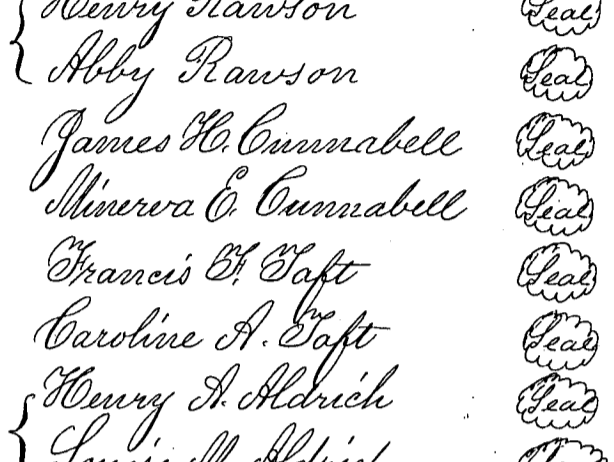 Henry Rawson Seal
Abby Rawson Seal
James H. Cunnabell Seal
Minerva E. Cunnabell Seal
Francis F. Taft Seal
Caroline A. Taft Seal
Henry A. Aldrich Seal
M. Aldrich Seal